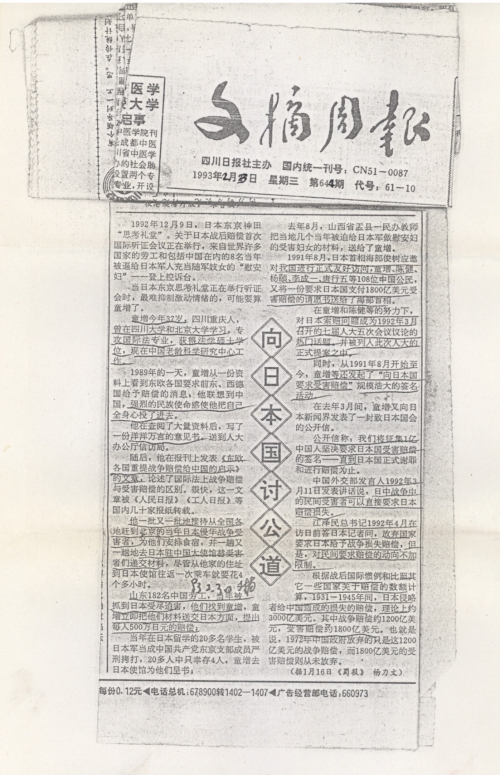 医学
大学
启事
中医学院刊
成都中医
省中医学
办的社会助
设置两个专
专业，开设
文摘周报
四川日报社主办 国内统一刊号：CN51—0087
1993年2月3日 星期三 第644期 代号：61—10
向日本国讨公道
1992年12月9日，日本东京神田
“思考礼堂”。关于日本战后赔偿首次
国际听证会议正在举行，来自世界许多
国家的劳工和包括中国在内的8名当年
被逼给日本军人充当随军妓女的“慰安
妇”一一登上控诉台。
当日本东京思考礼堂正在举行听证
会时，最难抑制激动情绪的，可能要算
童增了。
童增今年37岁，四川重庆人，
曾在四川大学和北京大学学习，专
攻国际法专业，获得法学硕士学
位，现在中国老龄科学研究中心工
作。
1989年的一天，童增从一份资
料上看到东欧各国要求前东、西德
国给予赔偿的消息，他联想到中
国，强烈的民族使命感使他把自己
全身心投了进去。
他在查阅了大量资料后，写了
一份洋洋万言的意见书，送到人大
办公厅信访局。
随后，他在报刊上发表《东欧
各国重提战争赔偿给中国的启示》
的文章，论述了国际法上战争赔偿
与受害赔偿的区别。很快，这一文
章被《人民日报》《工人日报》等
国内几十家报纸转载。
他一批又一批地接待从全国各
地赶到北京的当年日本侵华战争受
害者，为他们安排食宿，并一趟又
一趟地去日本驻中国大使馆替受害
者们递交材料，尽管从他家的住址
到日本使馆往返一次乘车就要花4
个多小时。
山东182名中国劳工，当年被
抓到日本受尽迫害，他们找到童增，童
增立即把他们材料送交日本方面，提出
每人500万日元的赔偿；
当年在日本留学的20多名学生，被
日本军当成中国共产党东京支部成员严
刑拷打，20多人中只幸存4人，童增去
日本使馆为他们呈书；
93.3.3日摘
去年8月，山西省盂县一民办教师
把当地几个当年被迫给日本军做慰安妇
的受害妇女的材料，送给了童增。
1991年8月日本首相海部俊树应邀
对我国进行正式友好访问，童增、陈健、
杨颐、李成一、唐行五等108位中国公民，
又将一份要求日本国支付1800亿美元受
害赔偿的请愿书送给了海部首相。
在童增和陈健等的努力下，
对日本索赔问题成为1992年3月
召开的七届人大五次会议议论的
热门话题，并被列入此次人大的
正式提案之中。
同时，从1991年8月开始至
今，童增等还发起了“向日本国
要求受害赔偿”规模浩大的签名
活动。
在去年3月间，童增又向日
本新闻界发表了一封致日本国会
的公开信。
公开信称，我们将征集1亿
中国人坚决要求日本国受害赔偿
的签名——直到日本国正式谢罪
和进行赔偿为止。
中国外交部发言人1992年3
月11日发表讲话说，日中战争中
的民间受害者可以直接要求日本
赔偿损失。
江泽民总书记1992年4月在
访日前答日本记者问，放弃国家
要求日本给予战争损失赔偿，但
是，对民间要求赔偿的动向不加
限制。
根据战后国际惯例和比照其
它一些国家关于赔偿的数额计
算，1931—1945年间，日本侵略
者给中国造成的损失的赔偿，理论上约
3000亿美元。其中战争赔偿约1200亿美
元，受害赔偿约1800亿美元。也就是
说，1972年中国政府放弃的只是这1200
亿美元的战争赔偿，而1800亿美元的受
害赔偿则从未放弃。
（摘1月16日《周报》 杨力文）
每份0.12元◀电话总机：678900转1402—1407◀广告经营部电话：660973